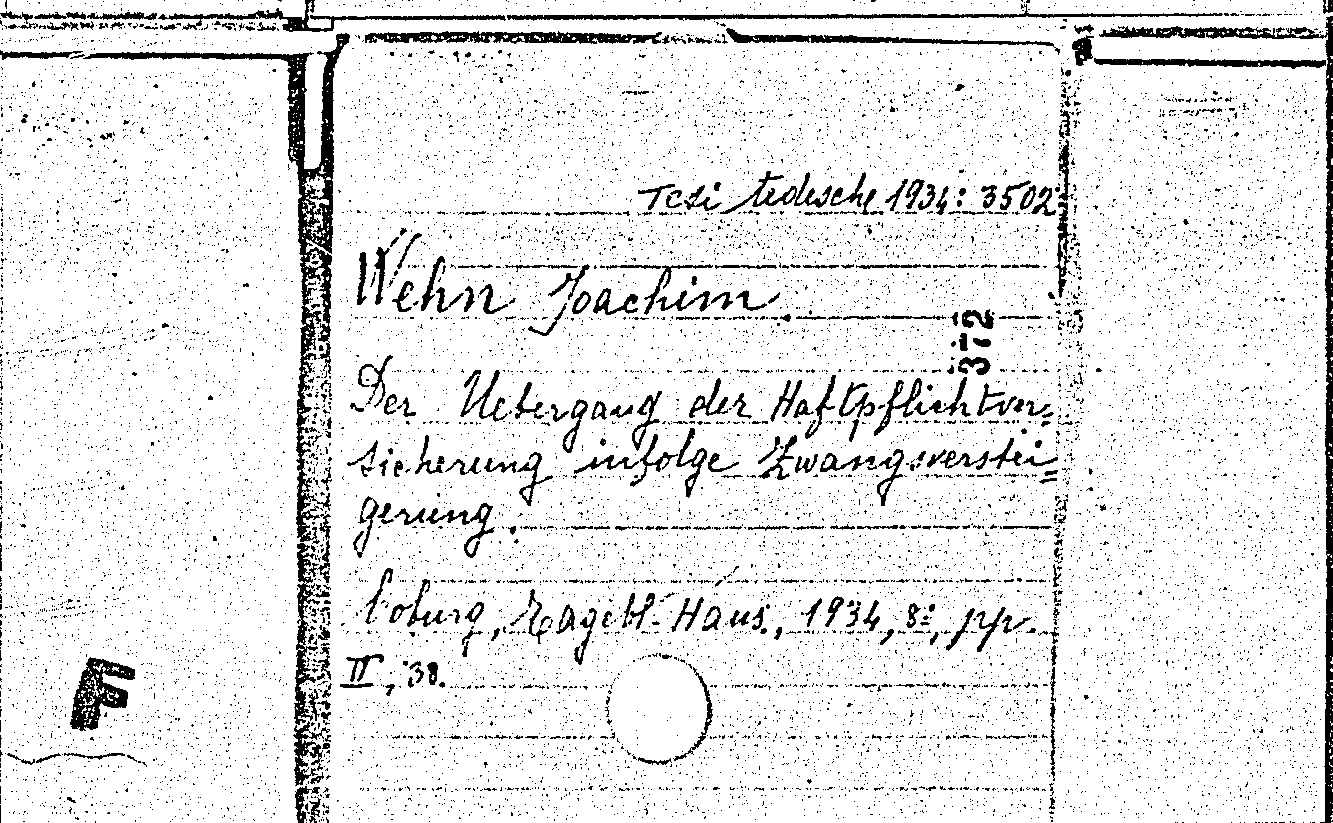 Tesi tedesche 1934: 3502
Wehn Joachim.
372
Der Uebergang der Haftpflichtver-
sicherung infolge Zwangsverstei=
gerung.
Coburg, Tagebl.-Haus., 1934, 8º, pp.
II, 38.
F